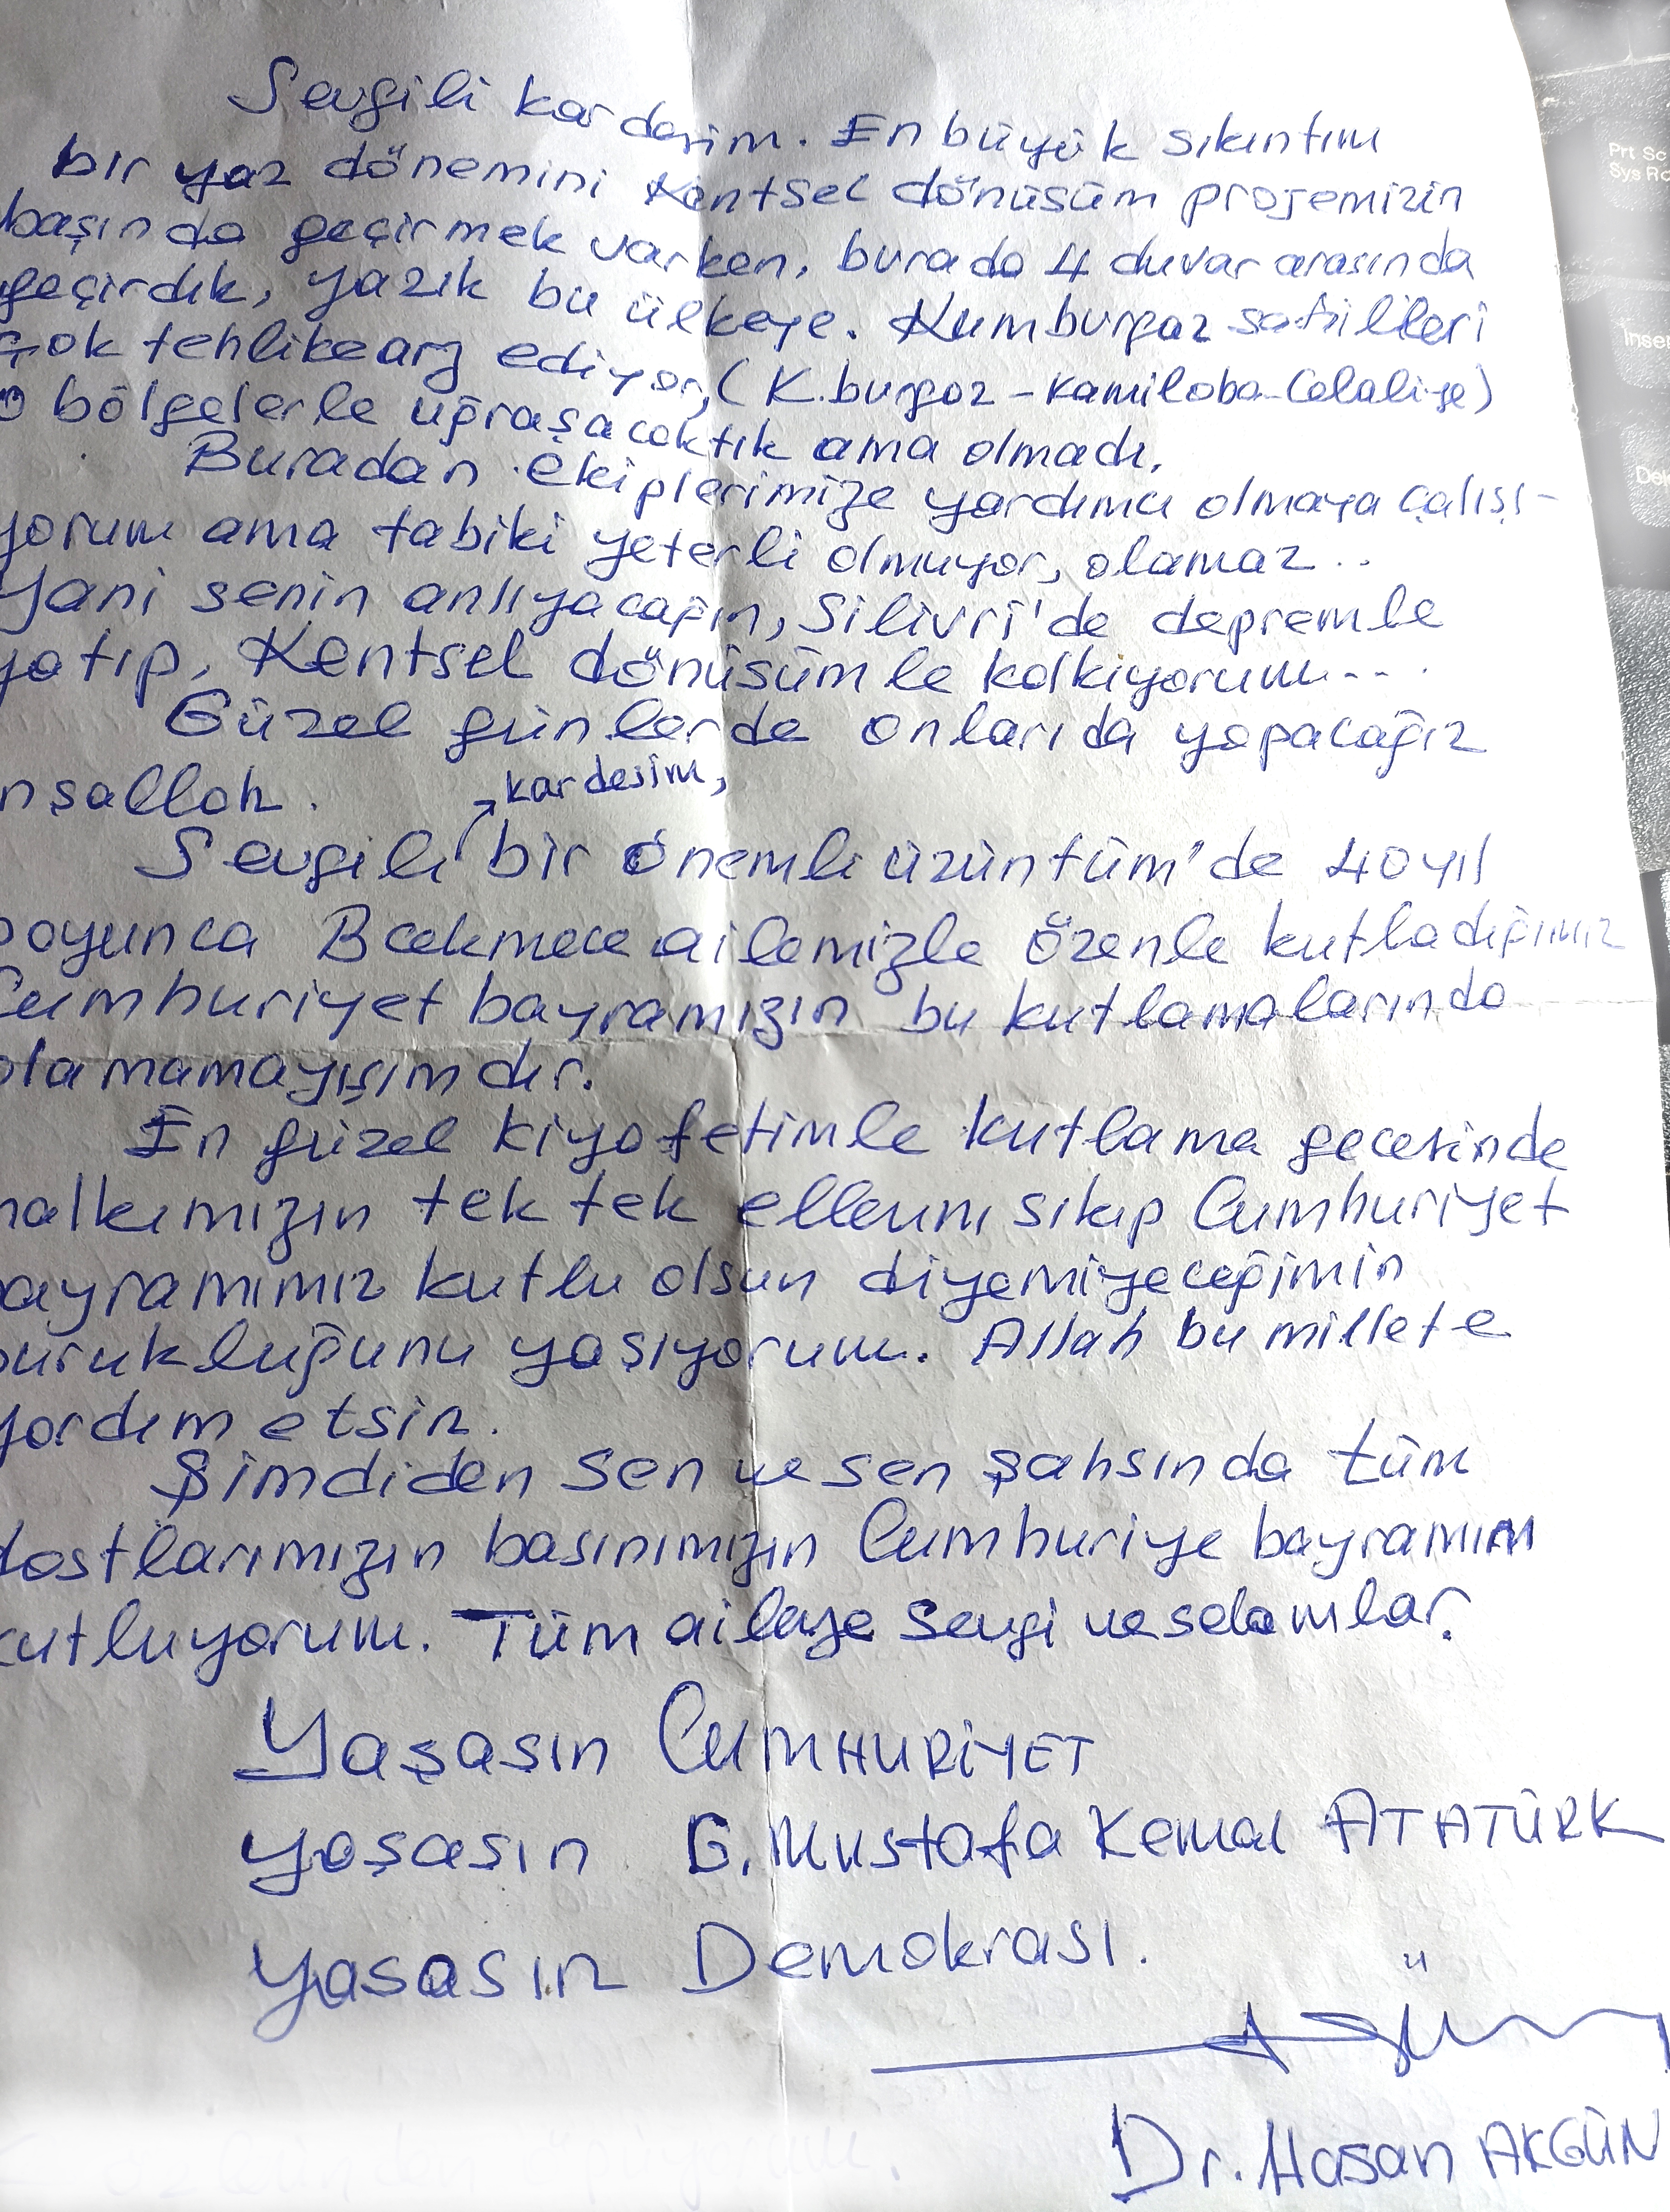 Sevgili kardeşim. En büyük sıkıntım
bir yaz dönemini Kentsel dönüşüm projemizin
başında geçirmek varken, burada 4 duvar arasında
geçirdik, yazık bu ülkeye. Kumburgaz sahilleri
çok tehlike arz ediyor, (K.burgaz - Kamiloba - Celaliye)
o bölgelerle uğraşacaktık ama olmadı.
Buradan ekiplerimize yardımcı olmaya çalışı-
yorum ama tabiki yeterli olmuyor, olamaz..
Yani senin anlıyacağın, Silivri'de depremle
yatıp, Kentsel dönüşümle kalkıyorum...
Güzel günlerde onlarıda yapacağız
nşallah.
kardeşim,
Sevgili bir önemli üzüntüm'de 40 yıl
boyunca Bcekmece ailemizle özenle kutladığımız
Cumhuriyet bayramızın bu kutlamalarında
olamamayışımdır.
En güzel kiyafetimle kutlama gecesinde
halkımızın tek tek ellerini sıkıp Cumhuriyet
bayramımız kutlu olsun diyemiyeceğimin
burukluğunu yaşıyorum. Allah bu millete
yardım etsin.
Şimdiden sen ve sen şahsında tüm
dostlarımızın basınımızın Cumhuriye bayramını
kutluyorum. Tüm aileye sevgi ve selamlar.
Yaşasın CUMHURİYET
yaşasın G. Mustafa Kemal ATATÜRK
yaşasın Demokrası.
Dr. Hasan AKGÜN
Prt Sc
Sys R
Inse
Del